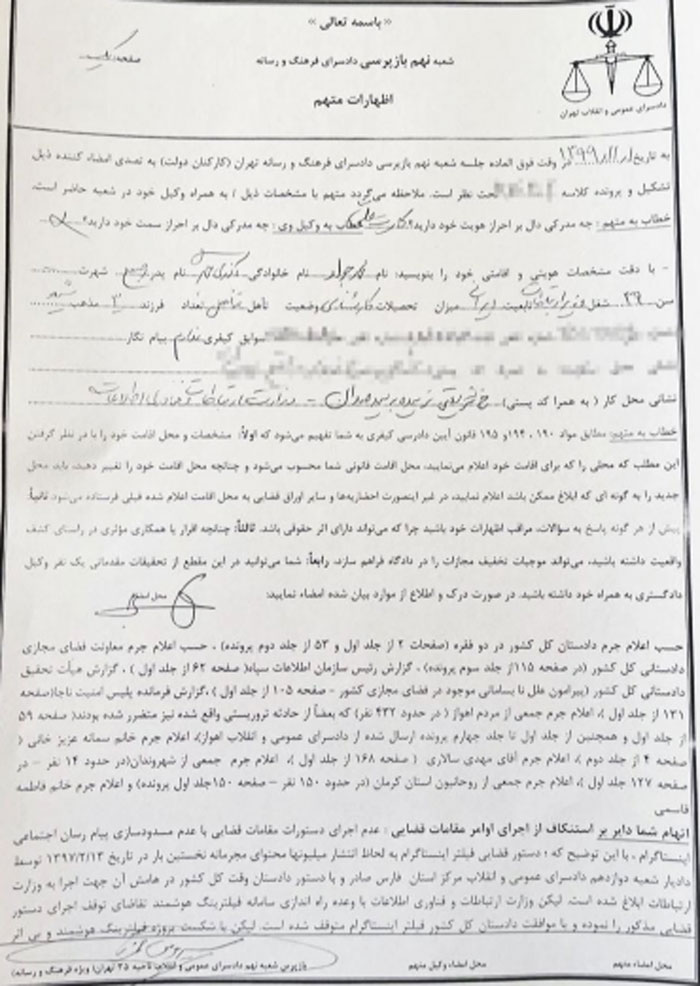 « باسمه تعالی »
شعبه نهم بازپرسی دادسرای فرهنگ و رسانه
صفحه یک
اظهارات متهم
دادسرای عمومی و انقلاب تهران
به تاریخ ۱۳۹۹ در وقت فوق العاده جلسه شعبه نهم بازپرسی دادسرای فرهنگ و رسانه تهران (کارکنان دولت) به تصدی امضاء کننده ذیل
تشکیل و پرونده کلاسه تحت نظر است. ملاحظه می‌گردد متهم با مشخصات ذیل / به همراه وکیل خود در شعبه حاضر است.
خطاب به متهم : چه مدرکی دال بر احراز هویت خود دارید؟ کارت ملی خطاب به وکیل وی : چه مدرکی دال بر احراز سمت خود دارید؟
- با دقت مشخصات هویتی و اقامتی خود را بنویسید: نام محمدجواد نام خانوادگی نام پدر شهرت
سن ۳۹ شغل وزیر ارتباطات تابعیت ایرانی میزان تحصیلات کارشناسی وضعیت تأهل متاهل تعداد فرزند ۳ مذهب شیعه
سوابق کیفری ندارم پیام نگار
نشانی محل کار ( به همراه کد پستی) خ شریعتی نرسیده به پل سیدخندان - وزارت ارتباطات و فناوری اطلاعات
خطاب به متهم: مطابق مواد ۱۹۰ ،۱۹۴و ۱۹۵ قانون آیین دادرسی کیفری به شما تفهیم می‌شود که اولاً: مشخصات و محل اقامت خود را با در نظر گرفتن
این مطلب که محلی را که برای اقامت خود اعلام می‌نمایید، محل اقامت قانونی شما محسوب می‌شود و چنانچه محل اقامت خود را تغییر دهید، باید محل
جدید را به گونه ای که ابلاغ ممکن باشد اعلام نمایید، در غیر اینصورت احضاریه‌ها و سایر اوراق قضایی به محل اقامت اعلام شده قبلی فرستاده می‌شود ثانیاً:
پیش از هر گونه پاسخ به سؤالات، مراقب اظهارات خود باشید چرا که می‌تواند دارای اثر حقوقی باشد. ثالثاً: چنانچه اقرار یا همکاری مؤثری در راستای کشف
واقعیت داشته باشید، می‌تواند موجبات تخفیف مجازات را در دادگاه فراهم سازد. رابعاً: شما می‌توانید در این مقطع از تحقیقات مقدماتی یک نفر وکیل
دادگستری به همراه خود داشته باشید. در صورت درک و اطلاع از موارد بیان شده امضاء نمایید: محل امضاء
حسب اعلام جرم دادستان کل کشور در دو فقره (صفحات ۲ از جلد اول و ۵۳ از جلد دوم پرونده) ، حسب اعلام جرم معاونت فضای مجازی
دادستانی کل کشور (در صفحه ۱۱۵از جلد سوم پرونده) ، گزارش رئیس سازمان اطلاعات سپاه( صفحه ۶۲ از جلد اول ) ، گزارش هیأت تحقیق
دادستانی کل کشور (پیرامون علل نا بسامانی موجود در فضای مجازی کشور - صفحه ۱۰۵ از جلد اول ) ،گزارش فرمانده پلیس امنیت ناجا(صفحه
۱۳۱ از جلد اول )، اعلام جرم جمعی از مردم اهواز ( در حدود ۴۳۲ نفر) که بعضاً از حادثه تروریستی واقع شده نیز متضرر شده بودند( صفحه ۵۹
از جلد اول و همچنین از جلد اول تا جلد چهارم پرونده ارسال شده از دادسرای عمومی و انقلاب اهواز)، اعلام جرم خانم سمانه عزیز خانی (
صفحه ۴ از جلد دوم )، اعلام جرم آقای مهدی سالاری ( صفحه ۱۶۸ از جلد اول )، اعلام جرم جمعی از شهروندان(در حدود ۱۴ نفر - در
صفحه ۱۲۷ جلد اول )، اعلام جرم جمعی از روحانیون استان کرمان (در حدود ۱۵۰ نفر – صفحه ۱۵۰جلد اول پرونده) و اعلام جرم خانم فاطمه
قاسمی
اتهام شما دایر بر استنکاف از اجرای اوامر مقامات قضایی : عدم اجرای دستورات مقامات قضایی با عدم مسدودسازی پیام رسان اجتماعی
اینستاگرام ، با این توضیح که ؛ دستور قضایی فیلتر اینستاگرام به لحاظ انتشار میلیونها محتوای مجرمانه نخستین بار در تاریخ ۱۳۹۷/۲/۱۳ توسط
دادیار شعبه دوازدهم دادسرای عمومی و انقلاب مرکز استان فارس صادر و با دستور دادستان وقت کل کشور در هامش آن جهت اجرا به وزارت
ارتباطات ابلاغ شده است. لیکن وزارت ارتباطات و فناوری اطلاعات با وعده راه اندازی سامانه فیلترینگ هوشمند تقاضای توقف اجرای دستور
قضایی مذکور را نموده و با موافقت دادستان کل کشور فیلتر اینستاگرام متوقف شده است. لیکن با شکست پروژه فیلترینگ هوشمند و بی اثر
محل امضاء متهم محل امضاء وکیل متهم بازپرس شعبه نهم دادسرای عمومی و انقلاب ناحیه ۲۵ تهران( ویژه فرهنگ و رسانه)